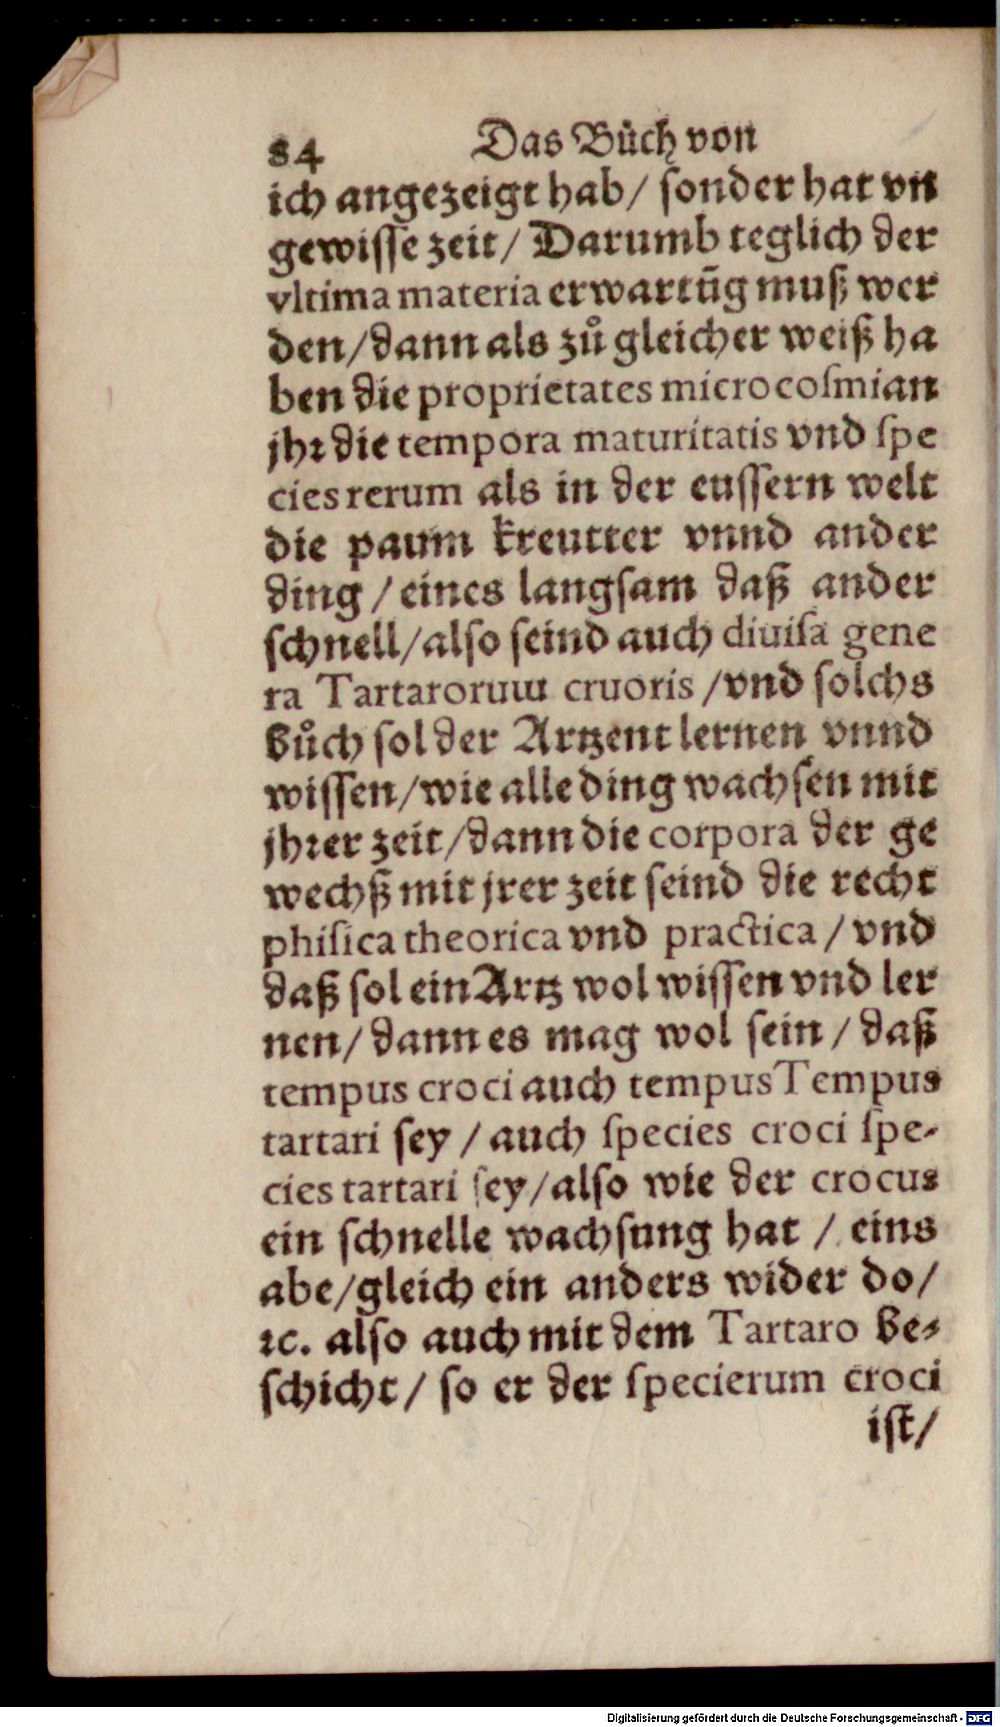 84 Das Bůch von
ich angezeigt hab/ sonder hat vn
gewisse zeit/ Darumb teglich der
vltima materia erwartūg muß wer
den/dann als zů gleicher weiß ha
ben die proprietates microcosmian
jhr die tempora maturitatis vnd spe
cies rerum als in der eussern welt
die paum kreutter vnnd ander
ding / eines langsam daß ander
schnell/also seind auch diuisa gene
ra Tartarorum cruoris /vnd solchs
Bůch sol der Artzent lernen vnnd
wissen/wie alle ding wachsen mit
jhrer zeit/dann die corpora der ge
wechß mit jrer zeit seind die recht
phisica theorica vnd practica / vnd
daß sol ein Artz wol wissen vnd ler
nen/ dann es mag wol sein / daß
tempus croci auch tempus Tempus
tartari sey / auch species croci spe-
cies tartari sey/also wie der crocus
ein schnelle wachsung hat / eins
abe/gleich ein anders wider do/
ꝛc. also auch mit dem Tartaro Be-
schicht/ so er der specierum croci
ist/
Digitalisierung gefördert durch die Deutsche Forschungsgemeinschaft - DFG